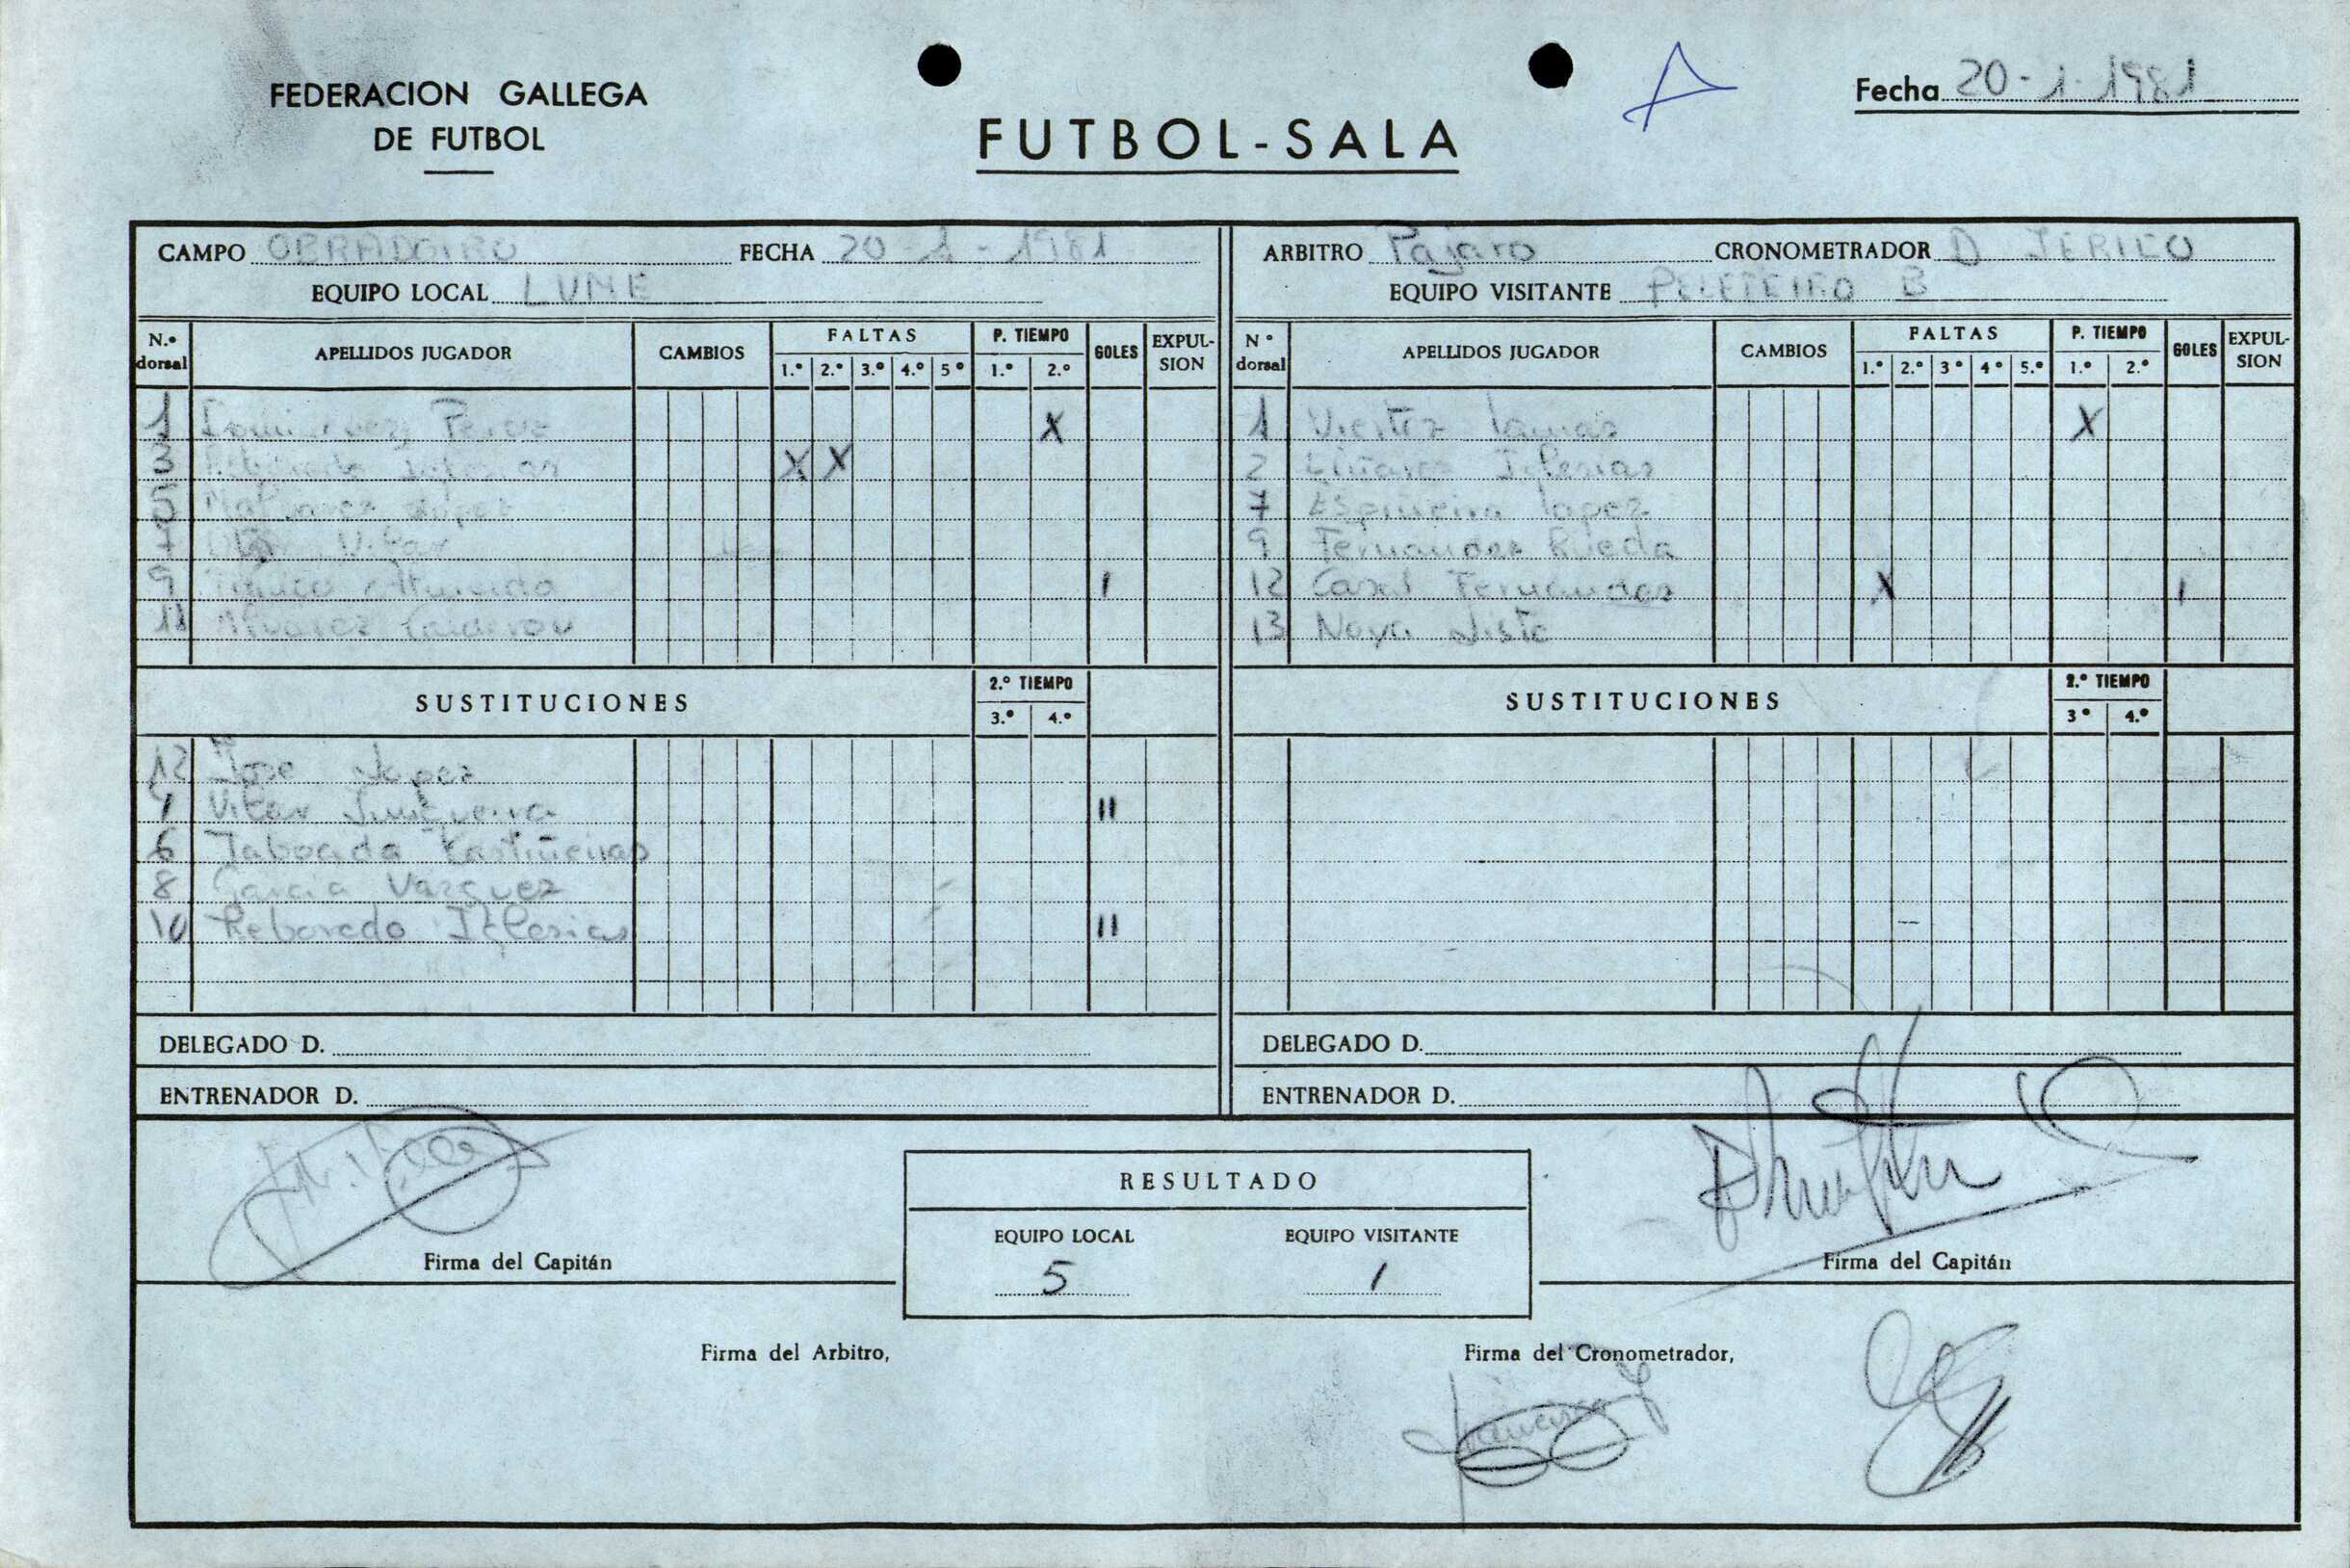 FEDERACION GALLEGA
DE FUTBOL
FUTBOL-SALA
Fecha 20-1-1981
CAMPO OBRADOIRO FECHA 20 1-1981
EQUIPO LOCAL LUME
ARBITRO Pajaro CRONOMETRADOR D JERICO
EQUIPO VISITANTE PELETEIRO B
N.º dorsal APELLIDOS JUGADOR CAMBIOS FALTAS 1.º 2.º 3.º 4.º 5º P. TIEMPO 1.º 2.º GOLES EXPULSION
1 Perez X
3 Iglesias X X
5
7 Vilar
9 I
11 Alvarez Calderon
SUSTITUCIONES 2.º TIEMPO 3.º 4.º
12 Jose Lopez
1 Vilar Junqueira II
6 Taboada Kastiñeiras
8 Garcia Vazquez
10 Reboredo Iglesias II
DELEGADO D.
ENTRENADOR D.
N º dorsal APELLIDOS JUGADOR CAMBIOS FALTAS 1.º 2.º 3º 4º 5.º P. TIEMPO 1.º 2.º GOLES EXPULSION
1 Vieitez Lamas X
2 Liñares Iglesias
7 Espiñeira Lopez
9 Fernandez Rueda
12 Casal Fernandez X I
13 Noya Liste
SUSTITUCIONES 2.º TIEMPO 3º 4.º
DELEGADO D.
ENTRENADOR D.
RESULTADO
EQUIPO LOCAL EQUIPO VISITANTE
5 1
Firma del Capitán
Firma del Capitán
Firma del Arbitro,
Firma del Cronometrador,